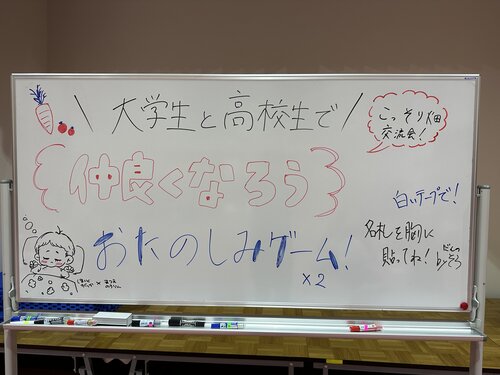 \ 大学生と高校生で /
こっそり畑
交流会！
仲良くなろう
白いテープで！
おたのしみゲーム！
×2
名札を胸に
貼ってね！